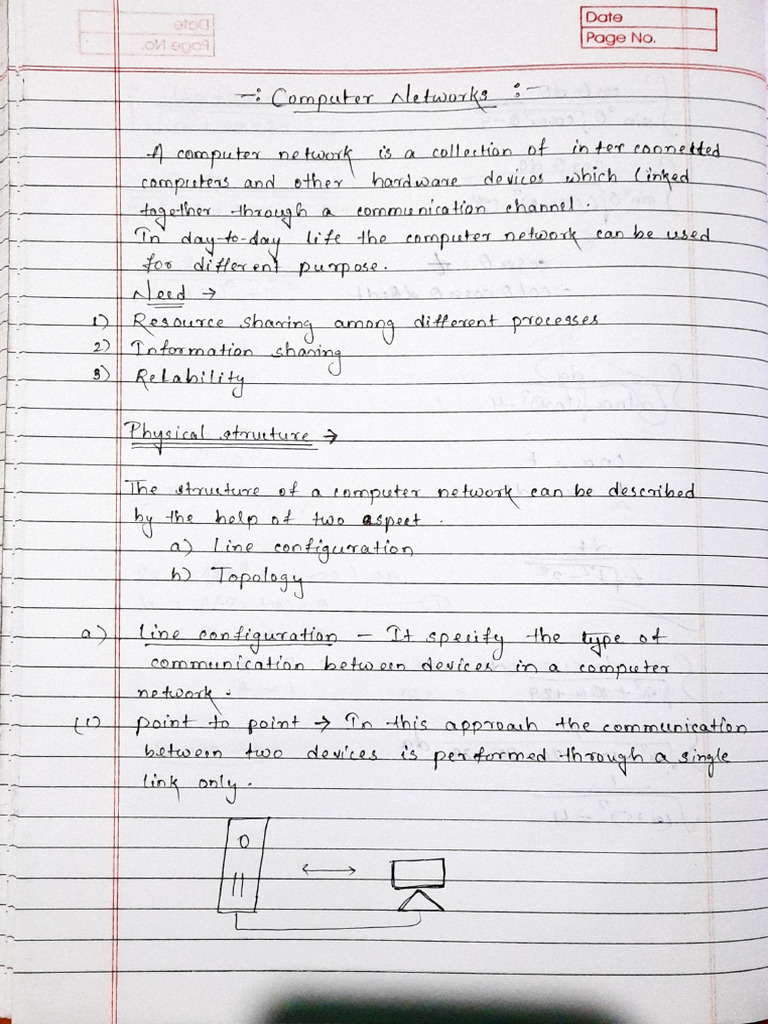 Date
Page No.
-: Computer Networks :-
A computer network is a collection of inter connetted
computers and other hardware devices which linked
together through a communication channel.
In day-to-day life the computer network can be used
for different purpose.
Need →
1) Resource sharing among different processes
2) Information sharing
3) Relability
Physical structure →
The structure of a computer network can be described
by the help of two aspect.
a) Line configuration
b) Topology
a) Line configuration - It specify the type of
communication between devices in a computer
network.
(1) point to point → In this approah the communication
between two devices is performed through a single
link only.